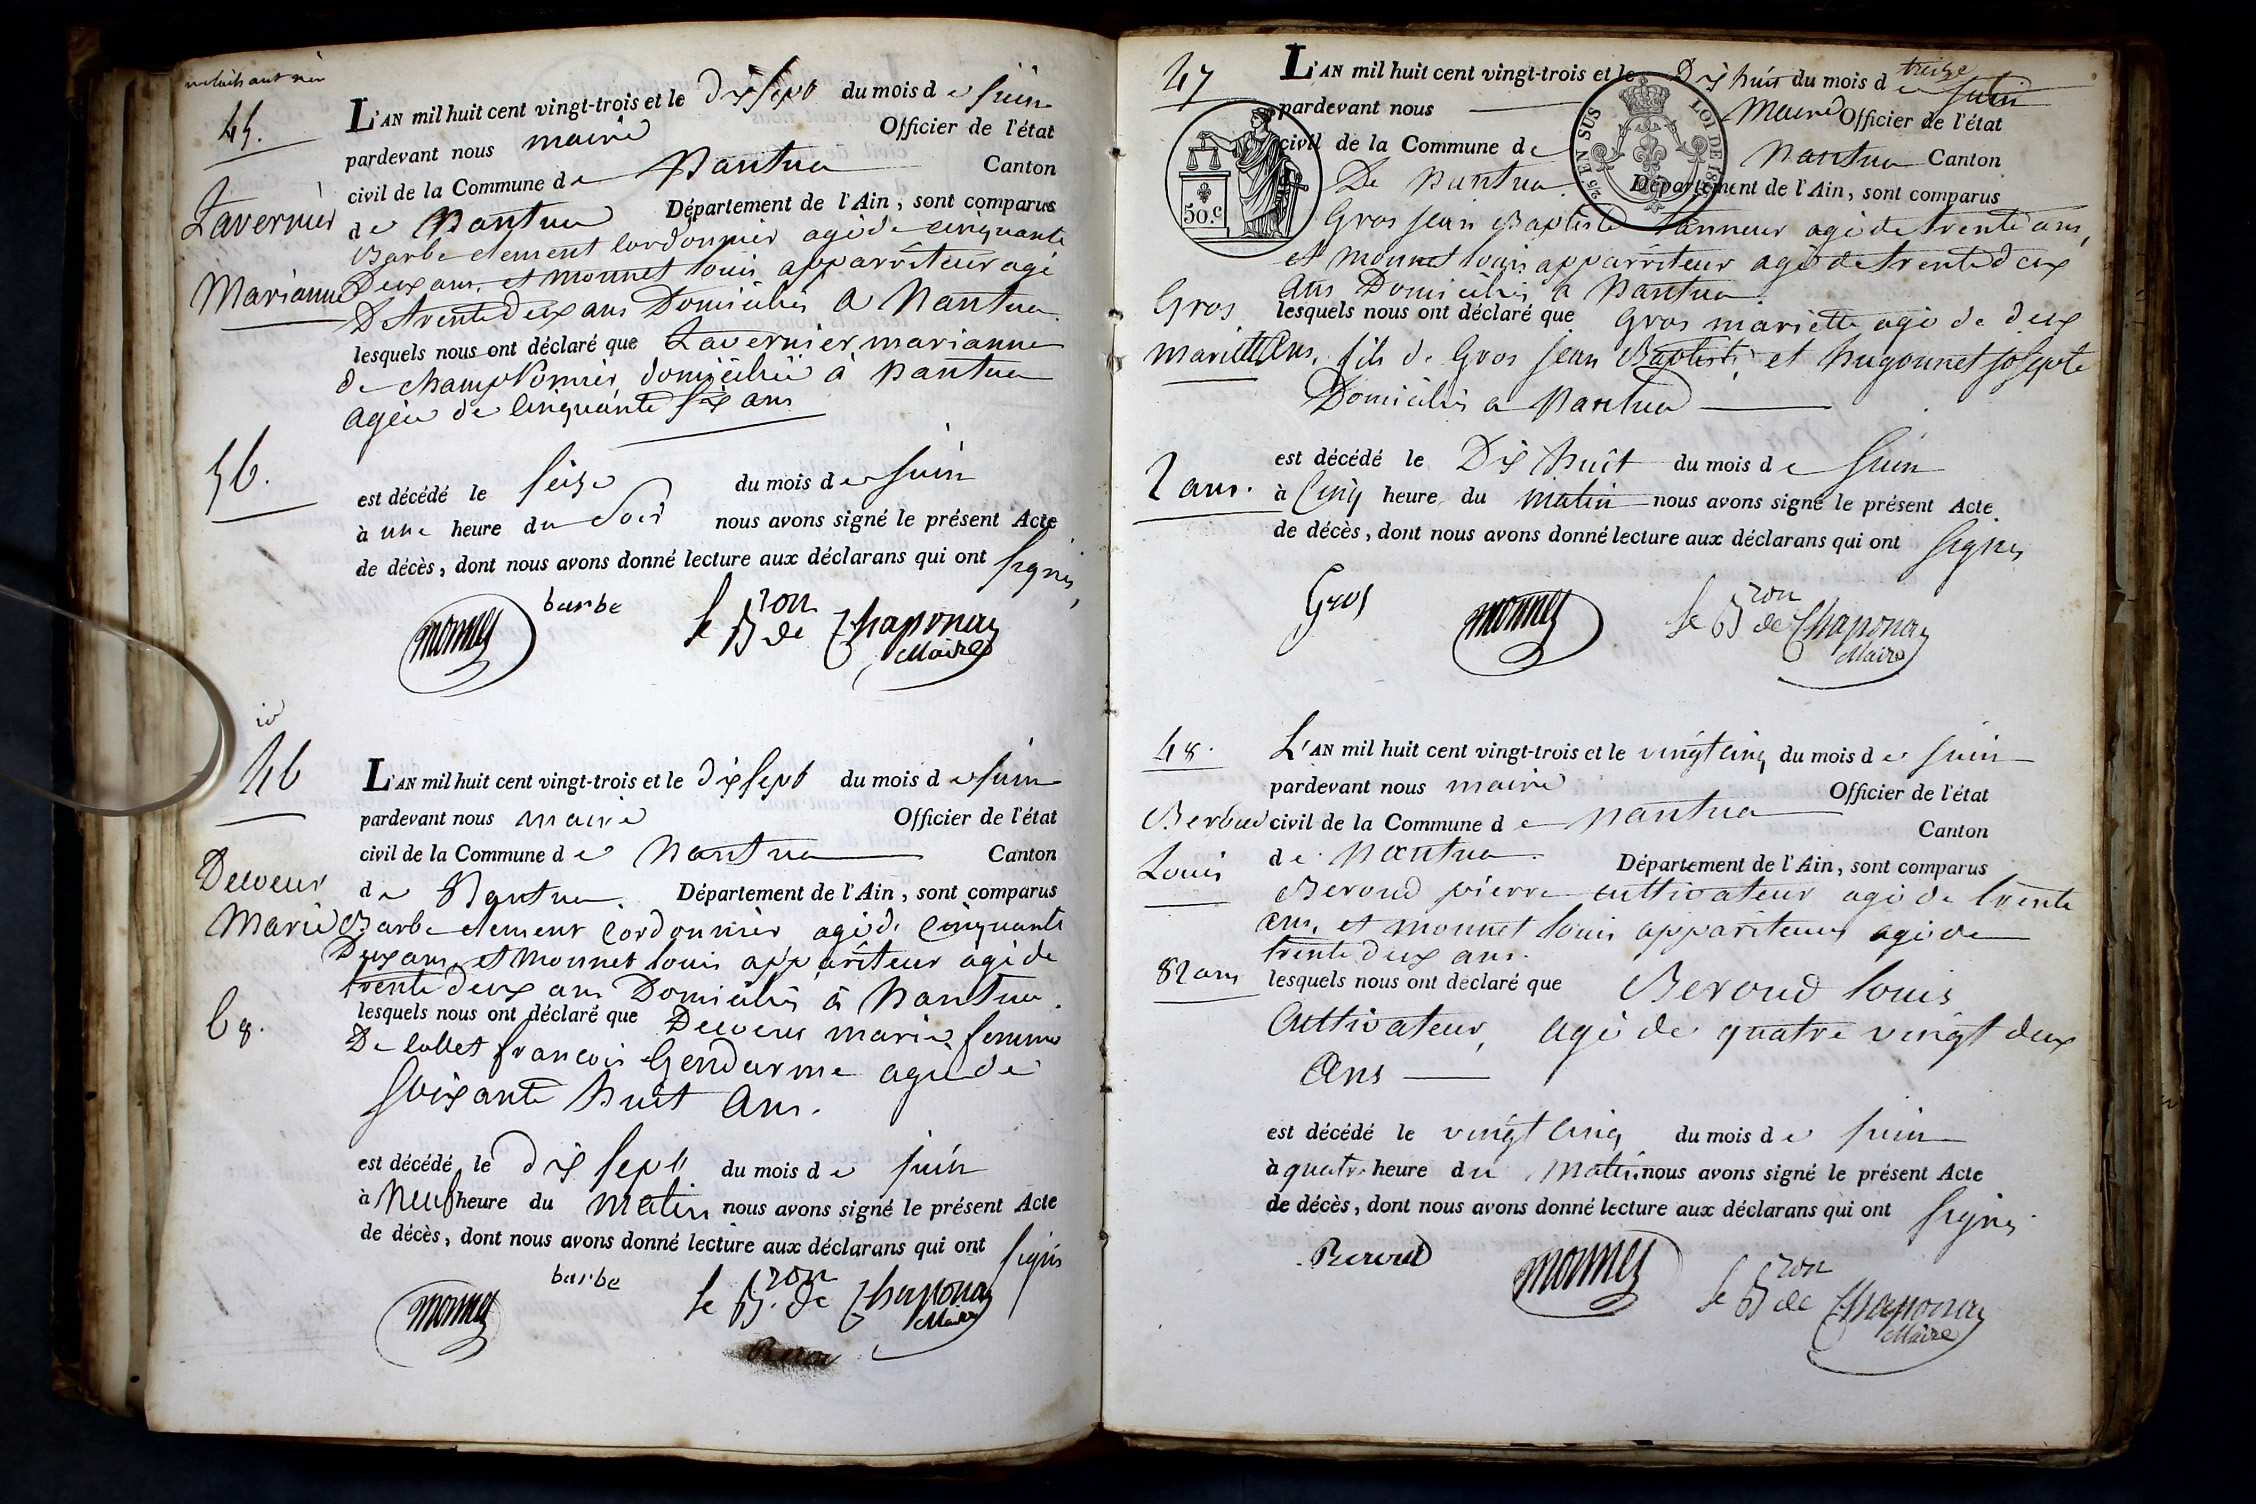 45.
Tavernier
Marianne
56.
L'AN mil huit cent vingt-trois et le dix sept du mois de juin
pardevant nous maire Officier de l'état
civil de la Commune de Nantua Canton
de Nantua Département de l'Ain, sont comparus
Barbe clement Cordonnier agé de cinquante
Deux ans, et monnet louis apparriteur agé
De trente deux ans Domiciliés a Nantua
lesquels nous ont déclaré que Tavernier marianne
de champfromier, domiciliée à Nantua
agée de Cinquante six ans
est décédé le seize du mois de juin
à une heure du soir nous avons signé le présent Acte
de décès, dont nous avons donné lecture aux déclarans qui ont signés
monnet barbe le Bron de Chaponay
Maire
46
Marie
68.
L'AN mil huit cent vingt-trois et le dix sept du mois de juin
pardevant nous maire Officier de l'état
civil de la Commune de Nantua Canton
de Nantua Département de l'Ain, sont comparus
Barbe clement Cordonnier agé de Cinquante
Deux ans, et Monnet louis appariteur agé de
trente deux ans Domiciliés à Nantua.
lesquels nous ont déclaré que marie femme
De collet francois Gendarme agée de
soixante huit ans.
est décédé le dix sept du mois de juin
à Neuf heure du matin nous avons signé le présent Acte
de décès, dont nous avons donné lecture aux déclarans qui ont signés
monnet barbe le Bron de Chaponay
Maire
47
Gros
mariette
2 ans.
50.c
25 EN SUS LOI DE
L'AN mil huit cent vingt-trois et le Dix huit du mois de juin
treize
pardevant nous Maire Officier de l'état
civil de la Commune de Nantua Canton
De Nantua Département de l'Ain, sont comparus
Gros jean Baptiste tanneur agé de trente ans,
et monnet louis apparriteur agé de trente deux
ans Domiciliés a Nantua
lesquels nous ont déclaré que Gros mariette agé de deux
ans, fils de Gros jean Baptiste, et hugonnet josepte
Domiciliés a Nantua
est décédé le Dix huit du mois de juin
à Cinq heure du matin nous avons signé le présent Acte
de décès, dont nous avons donné lecture aux déclarans qui ont signés
Gros monnet le Bron de Chaponay
Maire
48.
Louis
82 ans
L'AN mil huit cent vingt-trois et le vingt cinq du mois de juin
pardevant nous maire Officier de l'état
civil de la Commune de Nantua Canton
de Nantua. Département de l'Ain, sont comparus
Beroud pierre cultivateur agé de trente
ans, et monnet louis appariteur agé de
trente deux ans.
lesquels nous ont déclaré que Beroud louis
Cultivateur, agé de quatre vingt deux
Ans
est décédé le vingt cinq du mois de juin
à quatre heure du matin nous avons signé le présent Acte
de décès, dont nous avons donné lecture aux déclarans qui ont signés
Beroud monnet le Bron de Chaponay
Maire